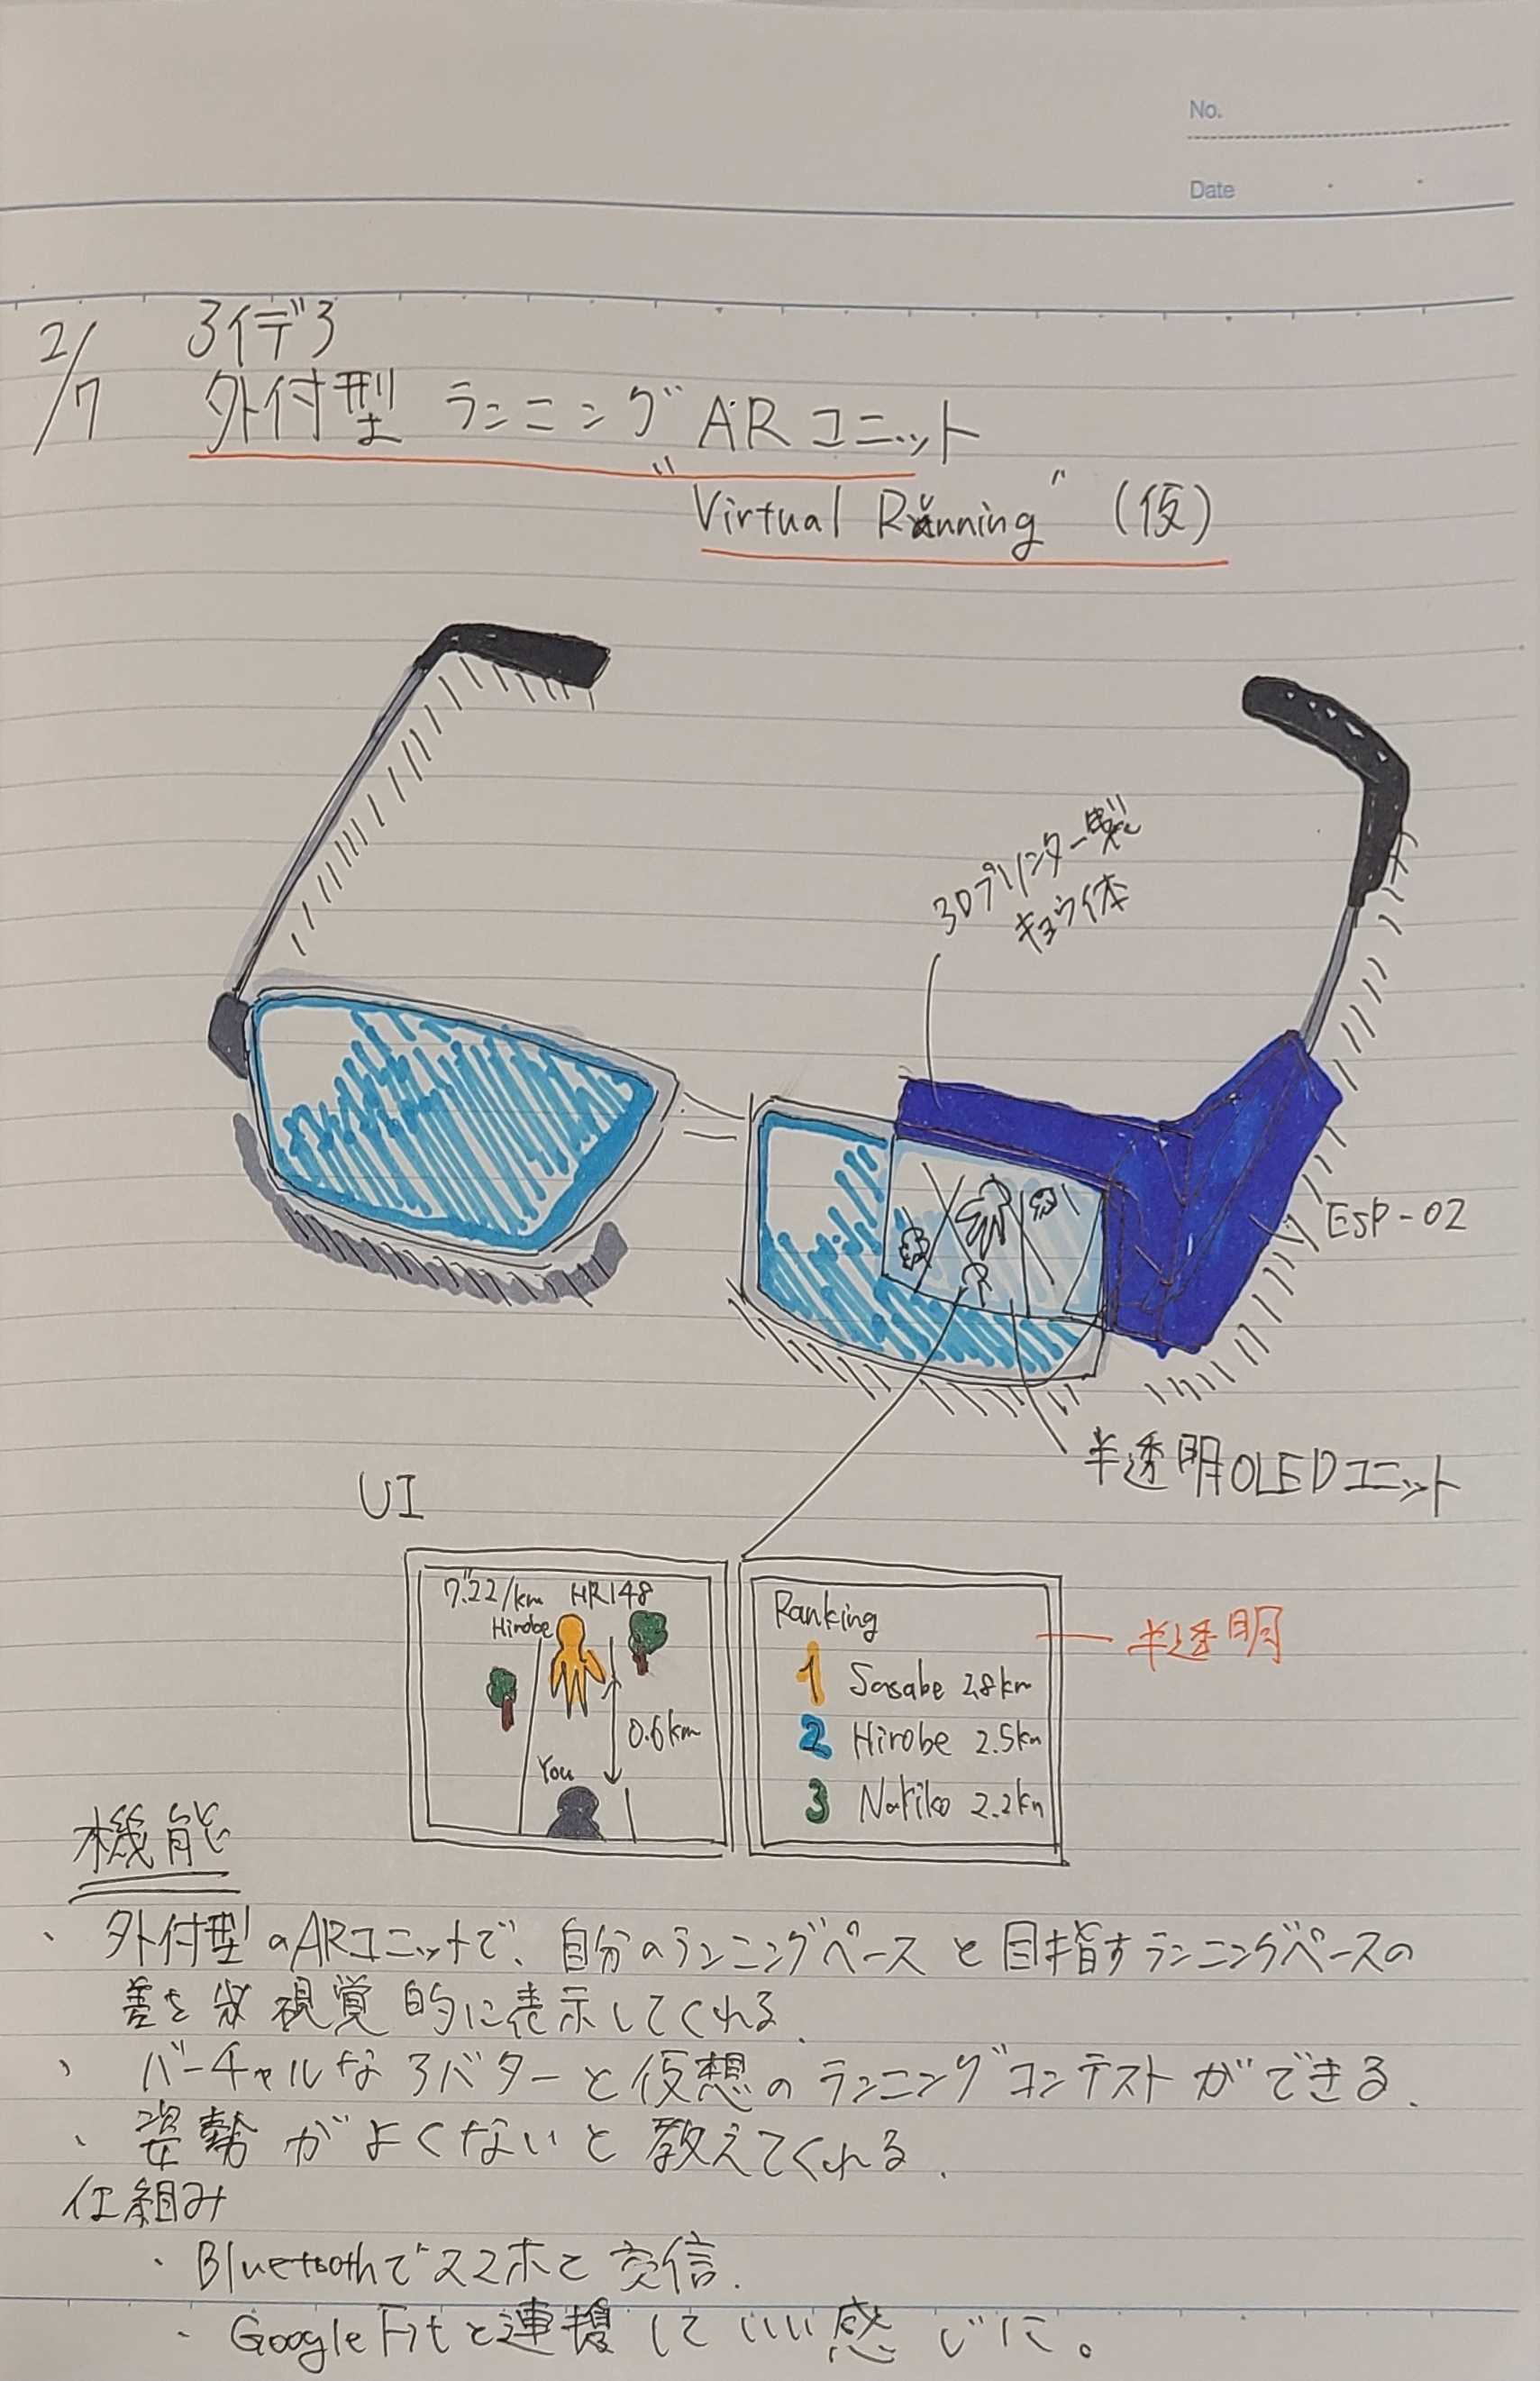 No.
Date
2/7 アイデア
外付型 ランニングARユニット
"Virtual Running" (仮)
3Dプリンター製
キョウ体
ESP-02
半透明OLEDユニット
UI
7"22/km HR148
Hirobe
0.6km
You
Ranking
1 Sasabe 2.8km
2 Hirobe 2.5km
3 Nakiko 2.2km
半透明
機能
・外付型のARユニットで、自分のランニングペースと目指すランニングペースの
差を視覚的に表示してくれる.
・バーチャルなアバターと仮想のランニングコンテストができる.
・姿勢がよくないと教えてくれる.
仕組み
・Bluetoothでスマホと交信.
・Google Fitと連携していい感じに。